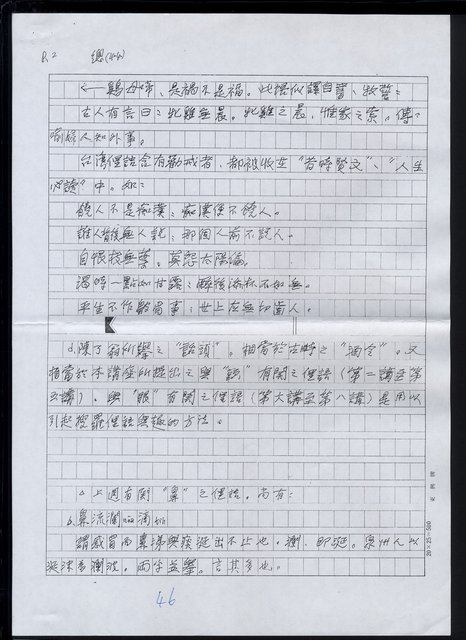 R2 總(46)
鷄母啼、是禍不是福。此損似譯自書、牧誓:
古人有言曰:牝雞無晨。牝雞之晨,惟家之索。傳:
喻婦人知外事。
台灣俚諺含有勸戒者、都被收在"昔時賢文"、"人生
必讀"中。如:
饒人不是痴漢;痴漢便不饒人。
誰人背後無人說;那個人前不說人。
自恨枝無葉。莫怨太陽偏。
渴時一點如甘露;醉後添杯不如無。
平生不作皺眉事;世上應無切齒人。
d.陳了翁所舉之"話頭"。相當於古時之"酒令"。又
相當於本講座所提出之與"顏"有關之俚諺(第一講至第
五講)、與"眼"有關之俚諺(第六講至第八講)是用以
引起搜羅俚諺興趣的方法。
△上週有關"鼻"之俚諺。尚有:
b.鼻流瀾滴
謂感冒而鼻涕與痰涎出不止也。瀾、即涎。泉州人以
涎沫為瀾波。兩字並舉。言其多也。
20×25=500
46